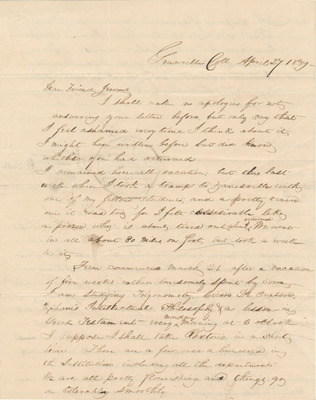 Granville Coll April 27 1839
Dear Friend
I shall make no apologies for not
answering your letter before but only say that
I feel ashamed every time I think about it
I might have written before but did know
whether you had returned
I remained here all vacation but the last
week when I took a tramp to Zanesville with
one of my fellow students, and a pretty
one it was too for I felt considerable like
a person who is about tired out. We went
in all about 80 miles on foot, we took a week
to it
Term commenced March 21 after a vacation
of five weeks rather lonesomely spent by some,
I am studying Trigonometry, Cicero De Oratore,
Upham's Intellectual Philosophy & a lesson in
Greek Testament every monday morning at 6 oclock
I suppose I shall take in a short
time. There are a few over a hundred in
the Institution including all the departments
We are all pretty flourishing and things go
on tolerably smoothly